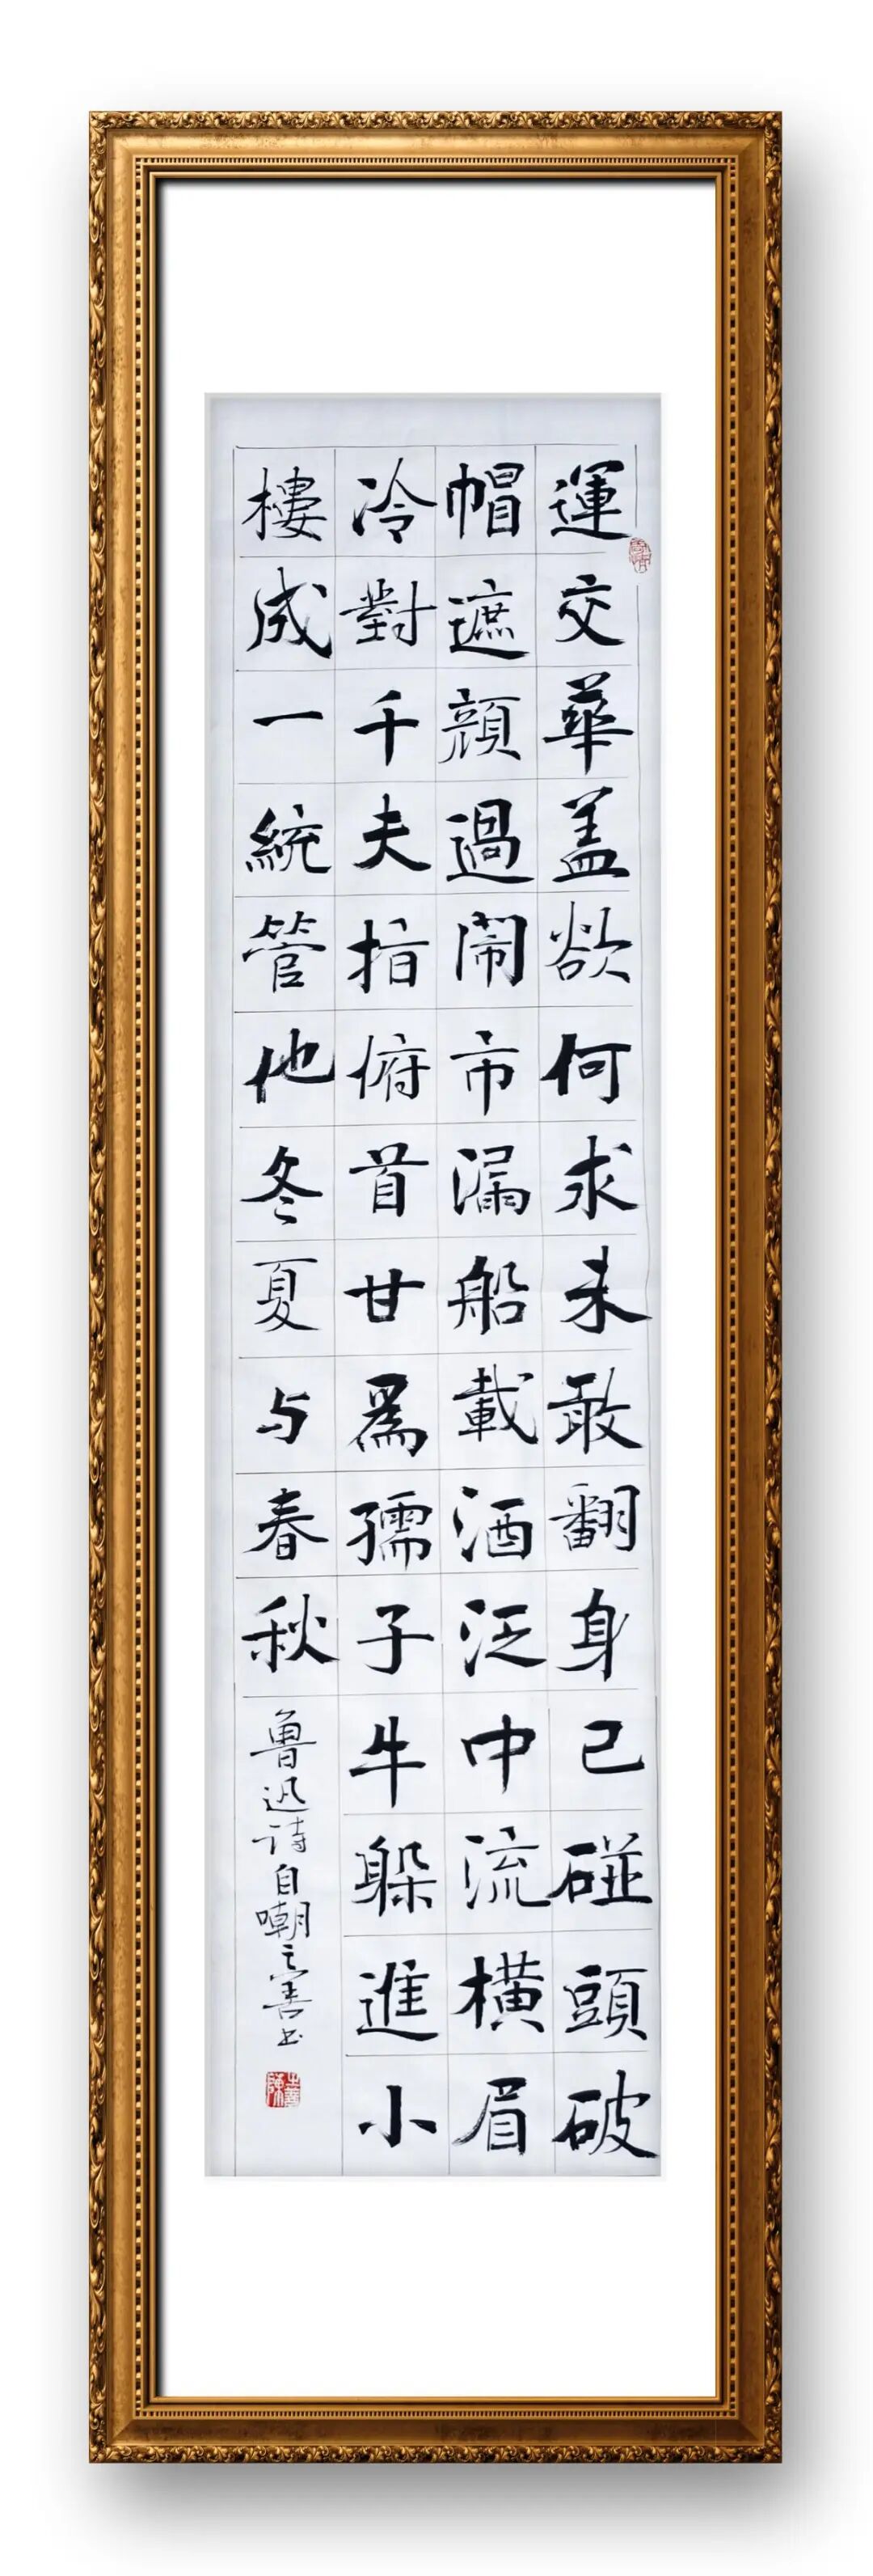 運交華盖欲何求未敢翻身已碰頭破
帽遮顔過闹市漏船載酒泛中流橫眉
冷對千夫指俯首甘爲孺子牛躲進小
樓成一統管他冬夏与春秋
魯迅诗自嘲之善书